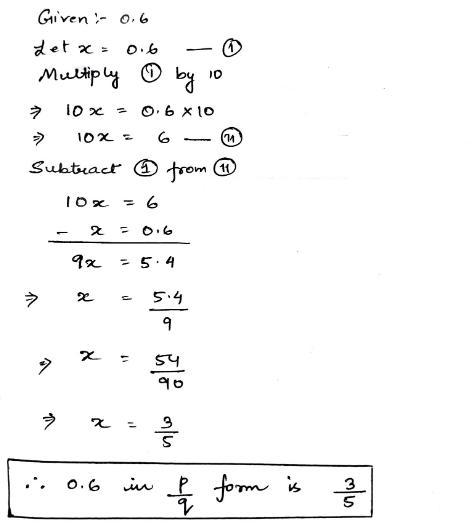 Given :- 0.6
Let x = 0.6 — ①
Multiply ① by 10
⇒ 10x = 0.6 × 10
⇒ 10x = 6 — ⑪
Subtract ① from ⑪
10x = 6
- x = 0.6
9x = 5.4
⇒ x = 5.4/9
⇒ x = 54/90
⇒ x = 3/5
∴ 0.6 in p/q form is 3/5